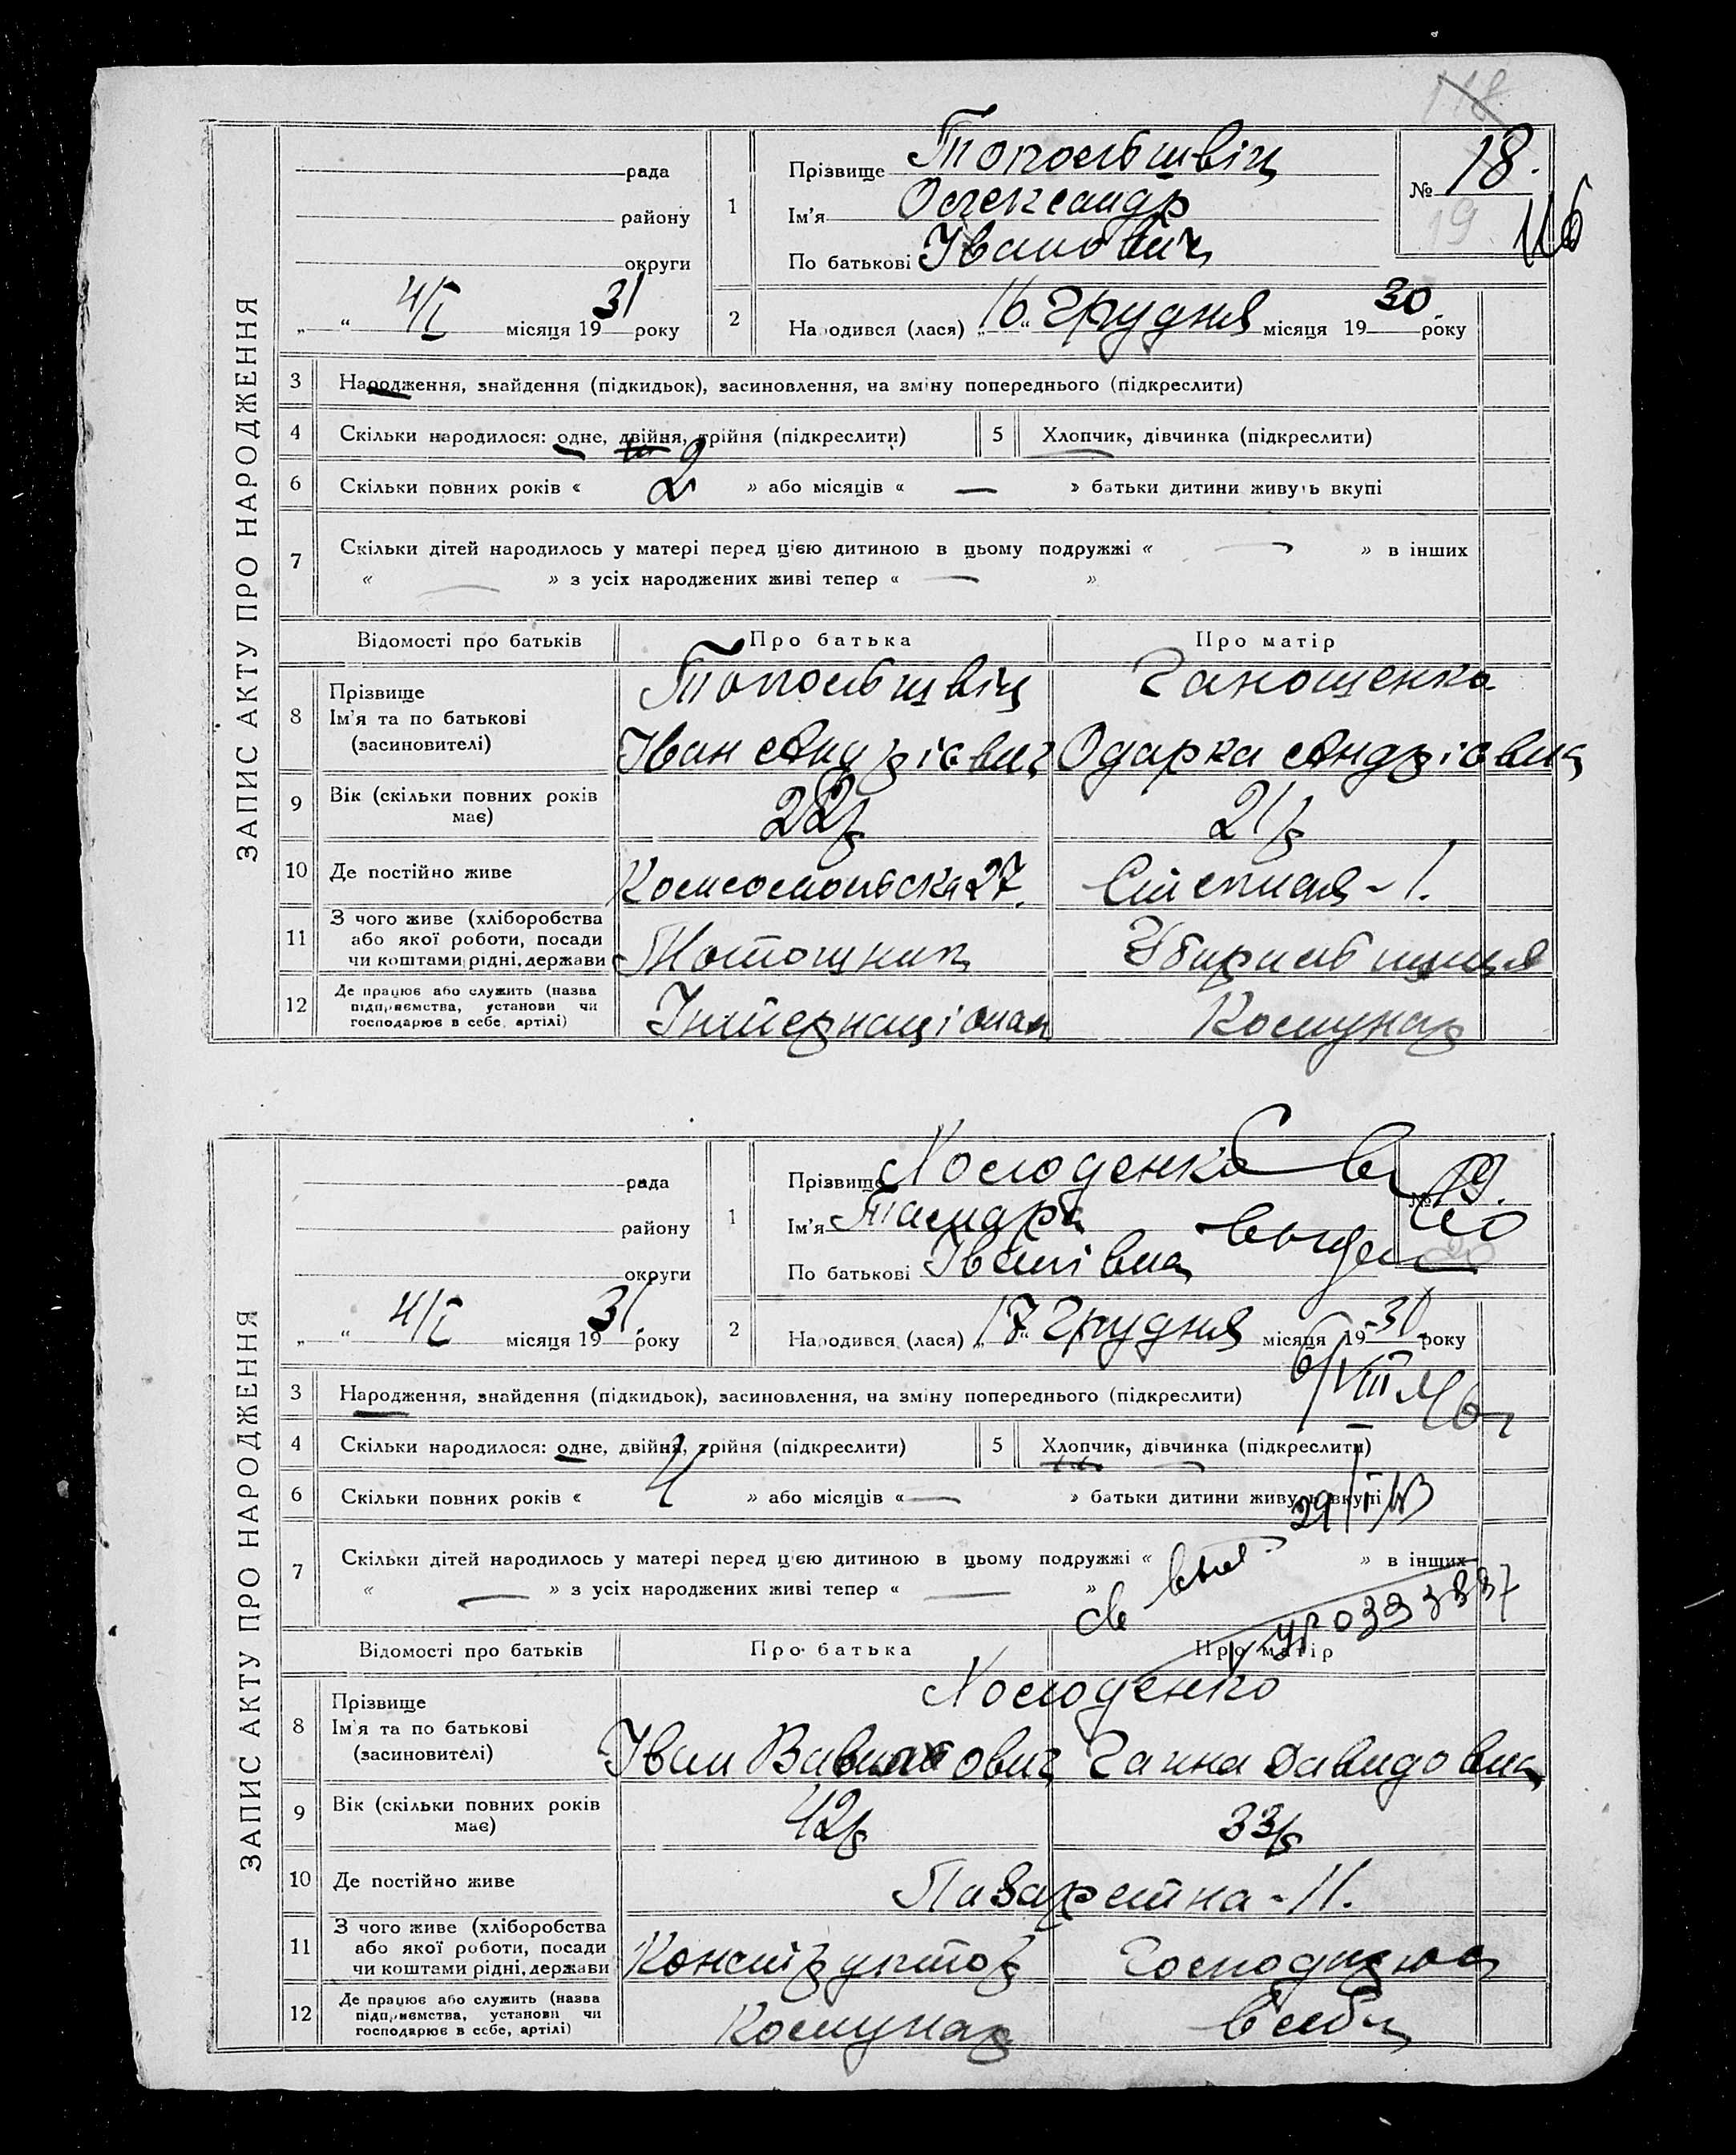 118
ЗАПИС АКТУ ПРО НАРОДЖЕННЯ
рада
району
округи
„ “ 4/I місяця 1931 року
1
Прізвище Топольшвіц
Ім'я Олександр
По батькові Іванович
№ 18.
19
116
2
Народився (лася) „16“ Грудня місяця 1930 року
3 Народження, знайдення (підкидьок), засиновлення, на зміну попереднього (підкреслити)
4 Скільки народилося: одне, двійня, трійня (підкреслити)
5 Хлопчик, дівчинка (підкреслити)
6 Скільки повних років « 2 » або місяців « — » батьки дитини живуть вкупі
7 Скільки дітей народилось у матері перед цією дитиною в цьому подружжі « — » в інших
« — » з усіх народжених живі тепер « — »
Відомості про батьків Про батька Про матір
8 Прізвище
Ім'я та по батькові
(засиновителі)
Топольшвіц
Іван Андрієвич
Ганощенко
Одарка Андрієвна
9 Вік (скільки повних років має) 22р 21р
10 Де постійно живе Комсомольска 27. Степная - 1.
11 З чого живе (хліборобства
або якої роботи, посади
чи коштами рідні, держави
Убиральниця
12 Де працює або служить (назва
підприємства, установи чи
господарює в себе, артілі)
Інтернаціонал Комунар
ЗАПИС АКТУ ПРО НАРОДЖЕННЯ
рада
району
округи
„ “ 4/I місяця 1931. року
1
Прізвище Холоденко
Ім'я Тамара
По батькові Іванівна
№ 19.
20
2
Народився (лася) „17“ Грудня місяця 1930 року
3 Народження, знайдення (підкидьок), засиновлення, на зміну попереднього (підкреслити)
4 Скільки народилося: одне, двійня, трійня (підкреслити)
5 Хлопчик, дівчинка (підкреслити)
6 Скільки повних років « 4 » або місяців « — » батьки дитини живуть вкупі
7 Скільки дітей народилось у матері перед цією дитиною в цьому подружжі « » в інших
« — » з усіх народжених живі тепер « — »
Відомості про батьків Про батька Про матір
8 Прізвище
Ім'я та по батькові
(засиновителі)
Холоденко
Іван Ганна Давидовна
9 Вік (скільки повних років має) 42р 33р
10 Де постійно живе Лазаретна - 11.
11 З чого живе (хліборобства
або якої роботи, посади
чи коштами рідні, держави
Конструктор
12 Де працює або служить (назва
підприємства, установи чи
господарює в себе, артілі)
Комунар в себя